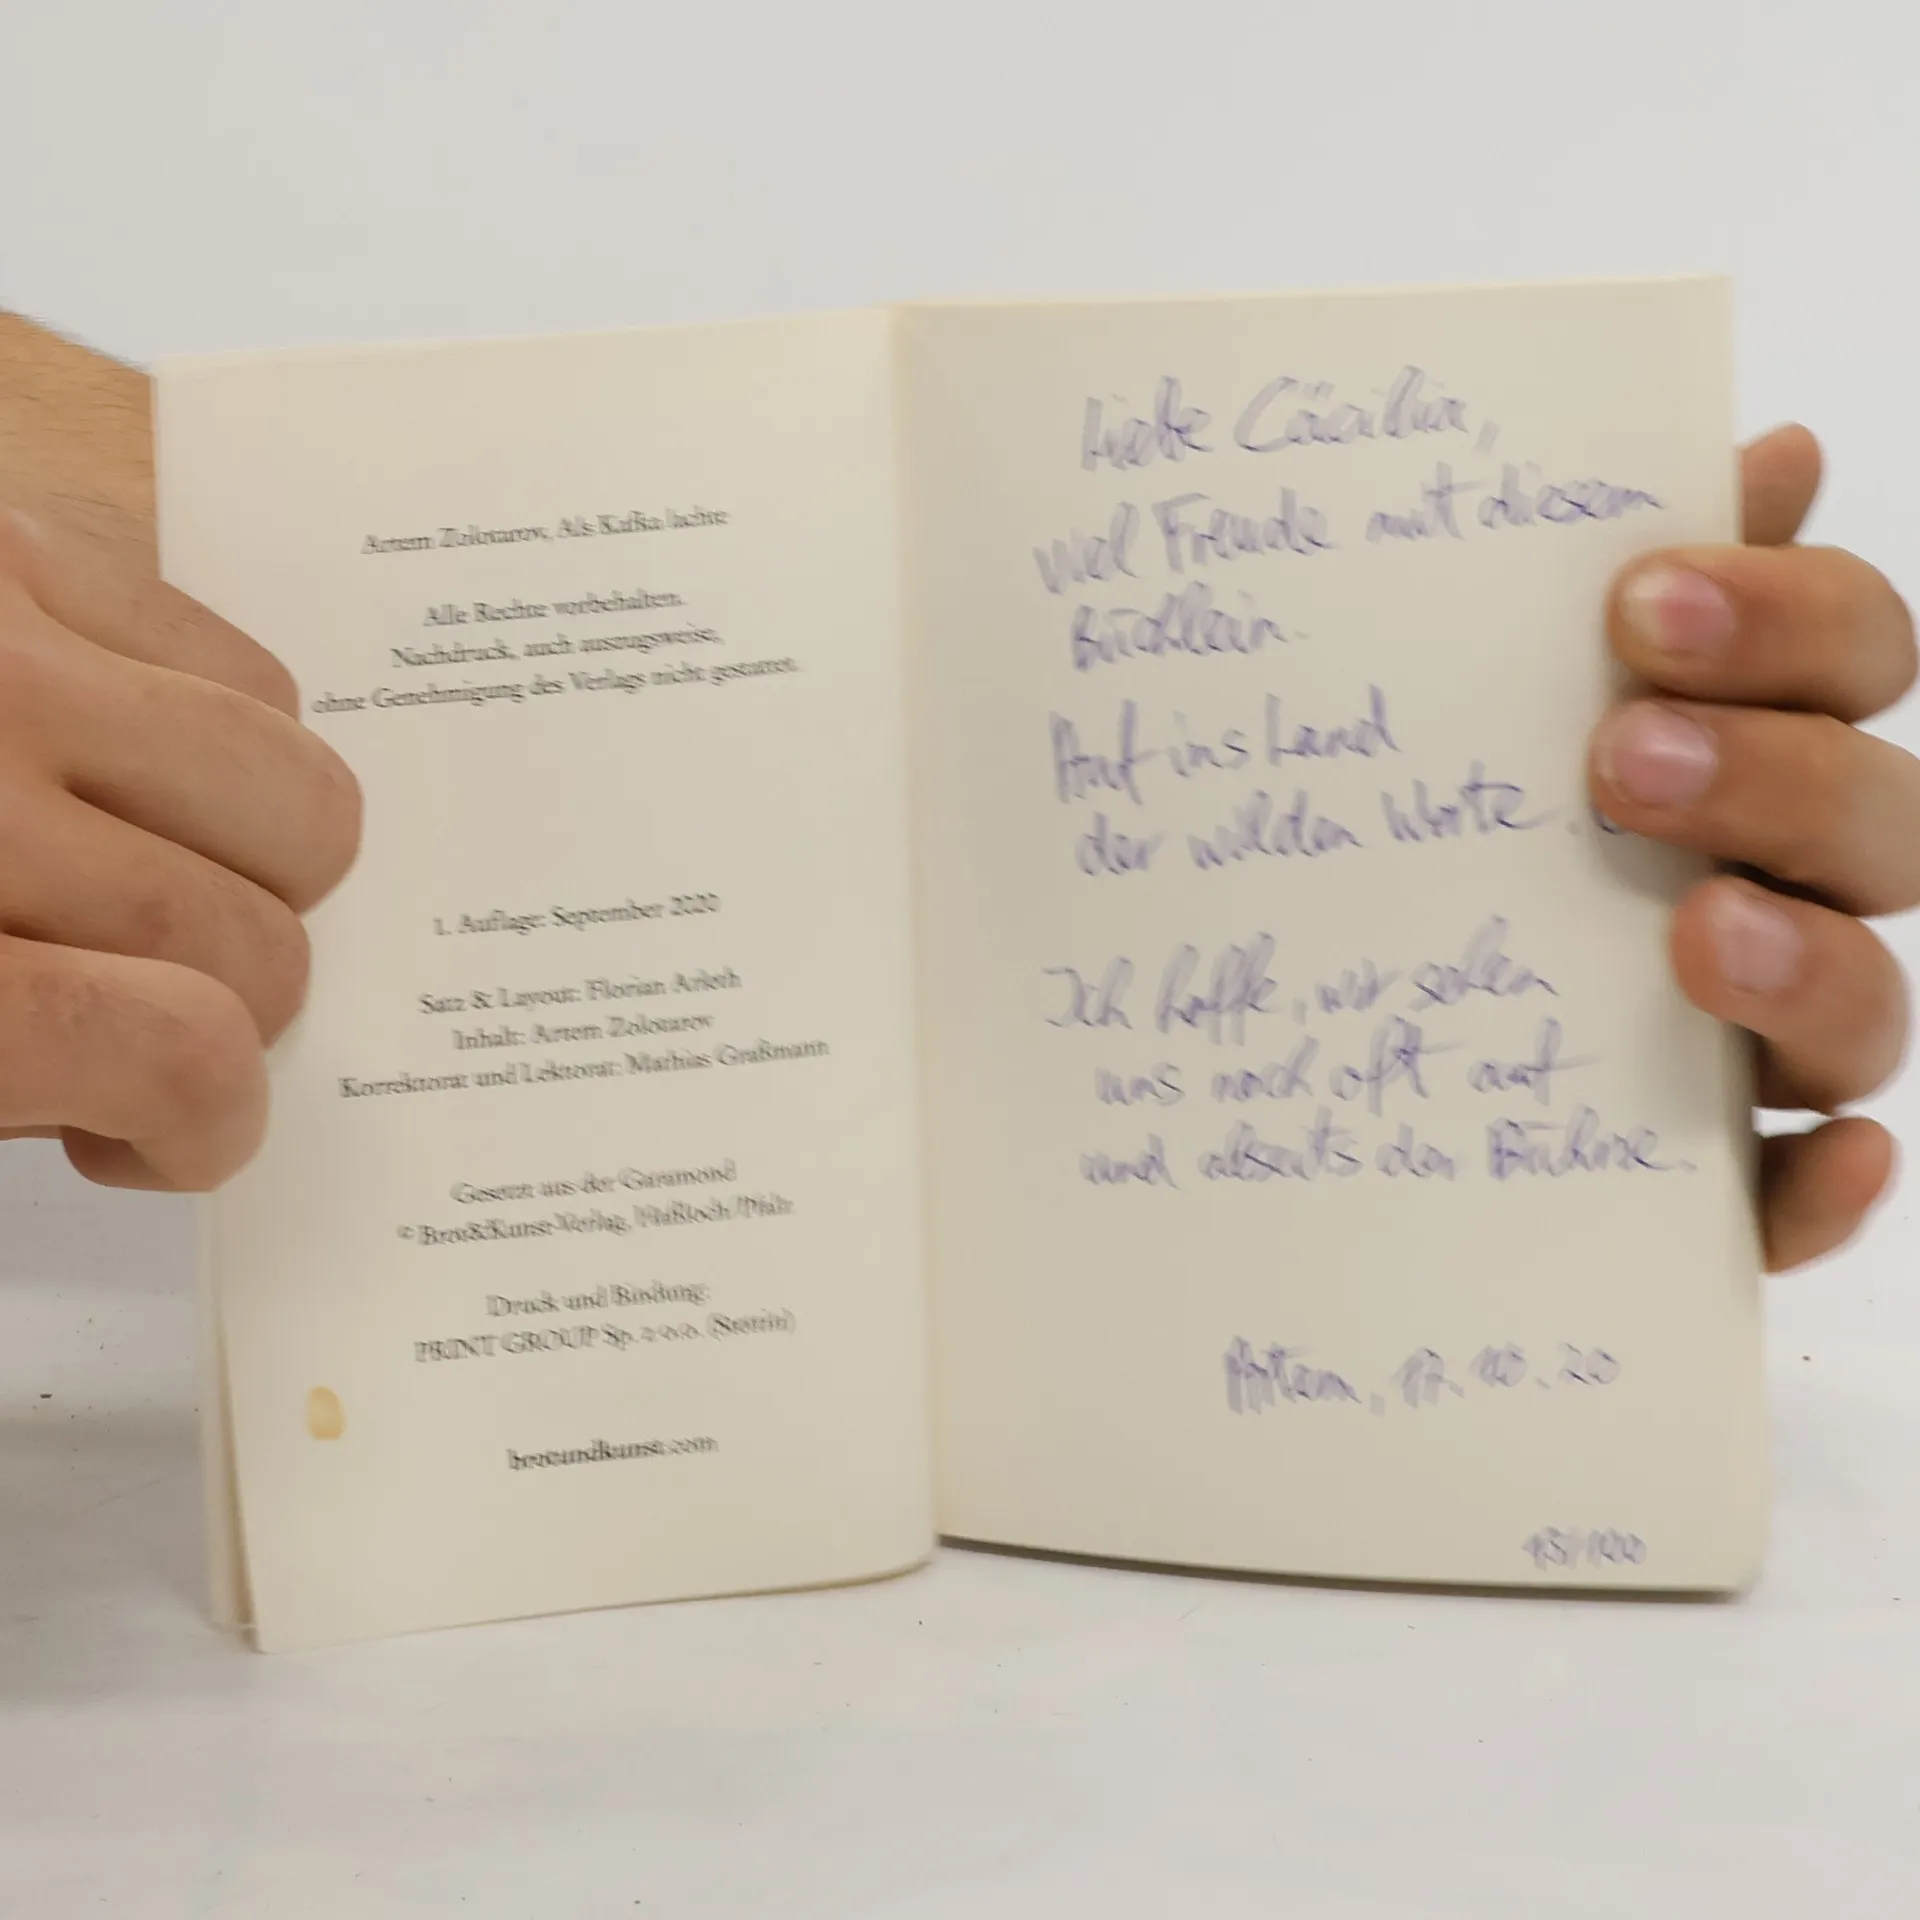 Artem Zolotarov, Als Kafka lachte
Alle Rechte vorbehalten.
Nachdruck, auch auszugsweise,
ohne Genehmigung des Verlags nicht gestattet.
1. Auflage: September 2020
Satz & Layout: Florian Arleth
Inhalt: Artem Zolotarov
Korrektorat und Lektorat: Mathias Graßmann
Gesetzt aus der Garamond
© Brot&Kunst-Verlag, Haßloch/Pfalz
Druck und Bindung:
PRINT GROUP Sp. z o.o. (Stettin)
brotundkunst.com
Liebe Cäcilia,
viel Freude mit diesem
Büchlein.
Auf ins Land
der wilden Worte.
Ich hoffe, wir sehen
uns noch oft auf
und abseits der Bühne.
Artem, 17.10.20
/100